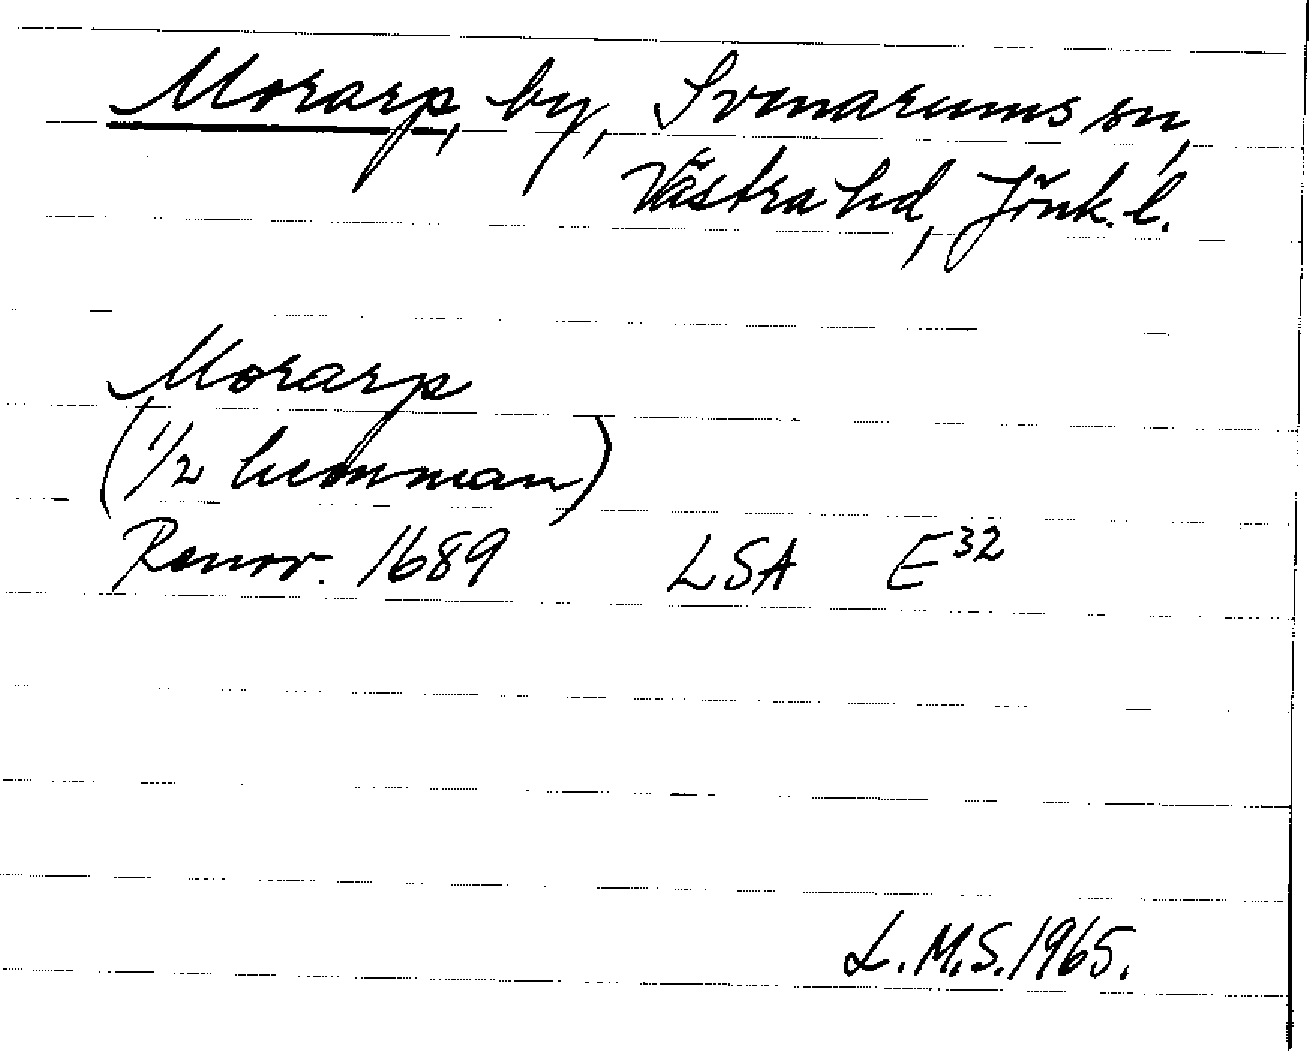 Morarp, by, Svenarums sn,
Västra hd, Jönk. l.
Morarp
(1/2 hemman)
Renov. 1689 LSA E32
L.M.S. 1965.